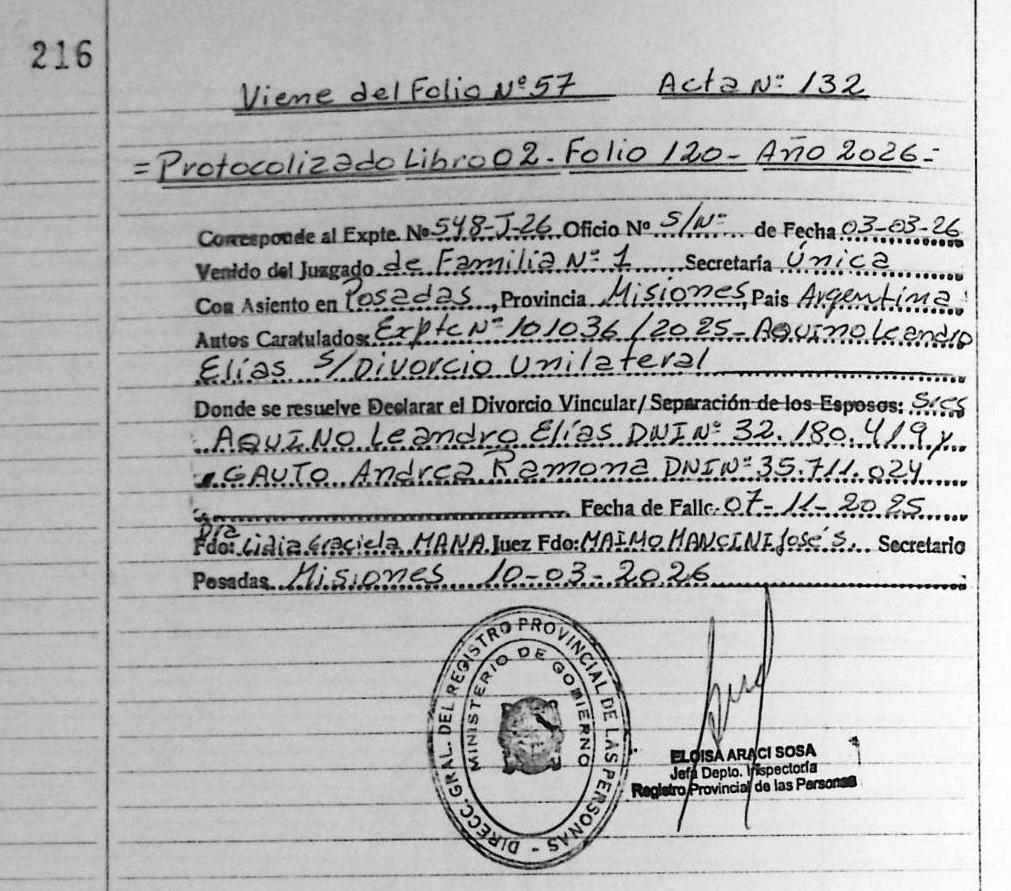 216
Viene del Folio Nº 57 Acta Nº 132
= Protocolizado Libro 02 - Folio 120 - Año 2026 =
Corresponde al Expte. Nº 548-J-26 Oficio Nº S/Nº de Fecha 03-03-26
Venido del Juzgado de Familia Nº 1 Secretaría Única
Con Asiento en Posadas, Provincia Misiones, Pais Argentina
Autos Caratulados: Expte Nº 101036/2025 - Aquino Leandro
Elías S/Divorcio Unilateral
Donde se resuelve Declarar el Divorcio Vincular/Separación de los Esposos: Sres
AQUINO Leandro Elías DNI Nº 32.180.419 y
GAUTO Andrea Ramona DNI Nº 35.711.024
Fecha de Fallo: 07-11-2025
Dra
Fdo: Lidia Graciela MANA Juez Fdo: MAIMO MANCINI José S. Secretario
Posadas Misiones 10-03-2026
DIRECC. GRAL. DEL REGISTRO PROVINCIAL DE LAS PERSONAS -
MINISTERIO DE GOBIERNO
ELOISA ARACI SOSA
Jefa Depto. Inspectoría
Registro Provincial de las Personas